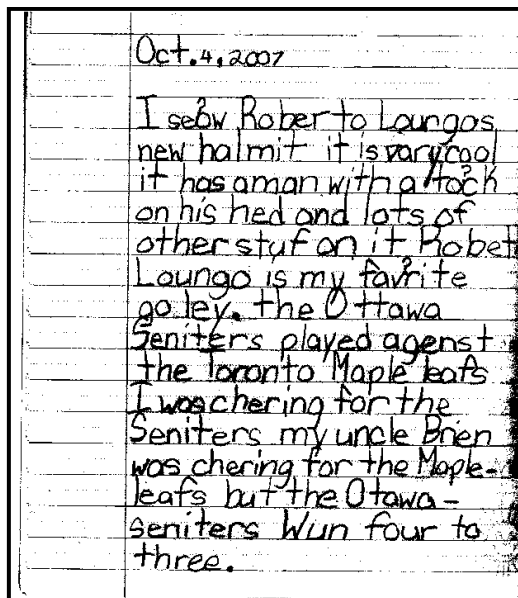 Oct. 4, 2007
I seow Roberto Loungos
new halmit it is vary cool
it has a man with a tock
on his hed and lots of
other stuf on it Robet
Loungo is my favrite
goley. the Ottawa
Seniters played agenst
the Toronto Maple leafs
I was chering for the
Seniters my uncle Brien
was chering for the Maple-
leafs but the Otawa-
seniters Wun four to
three.